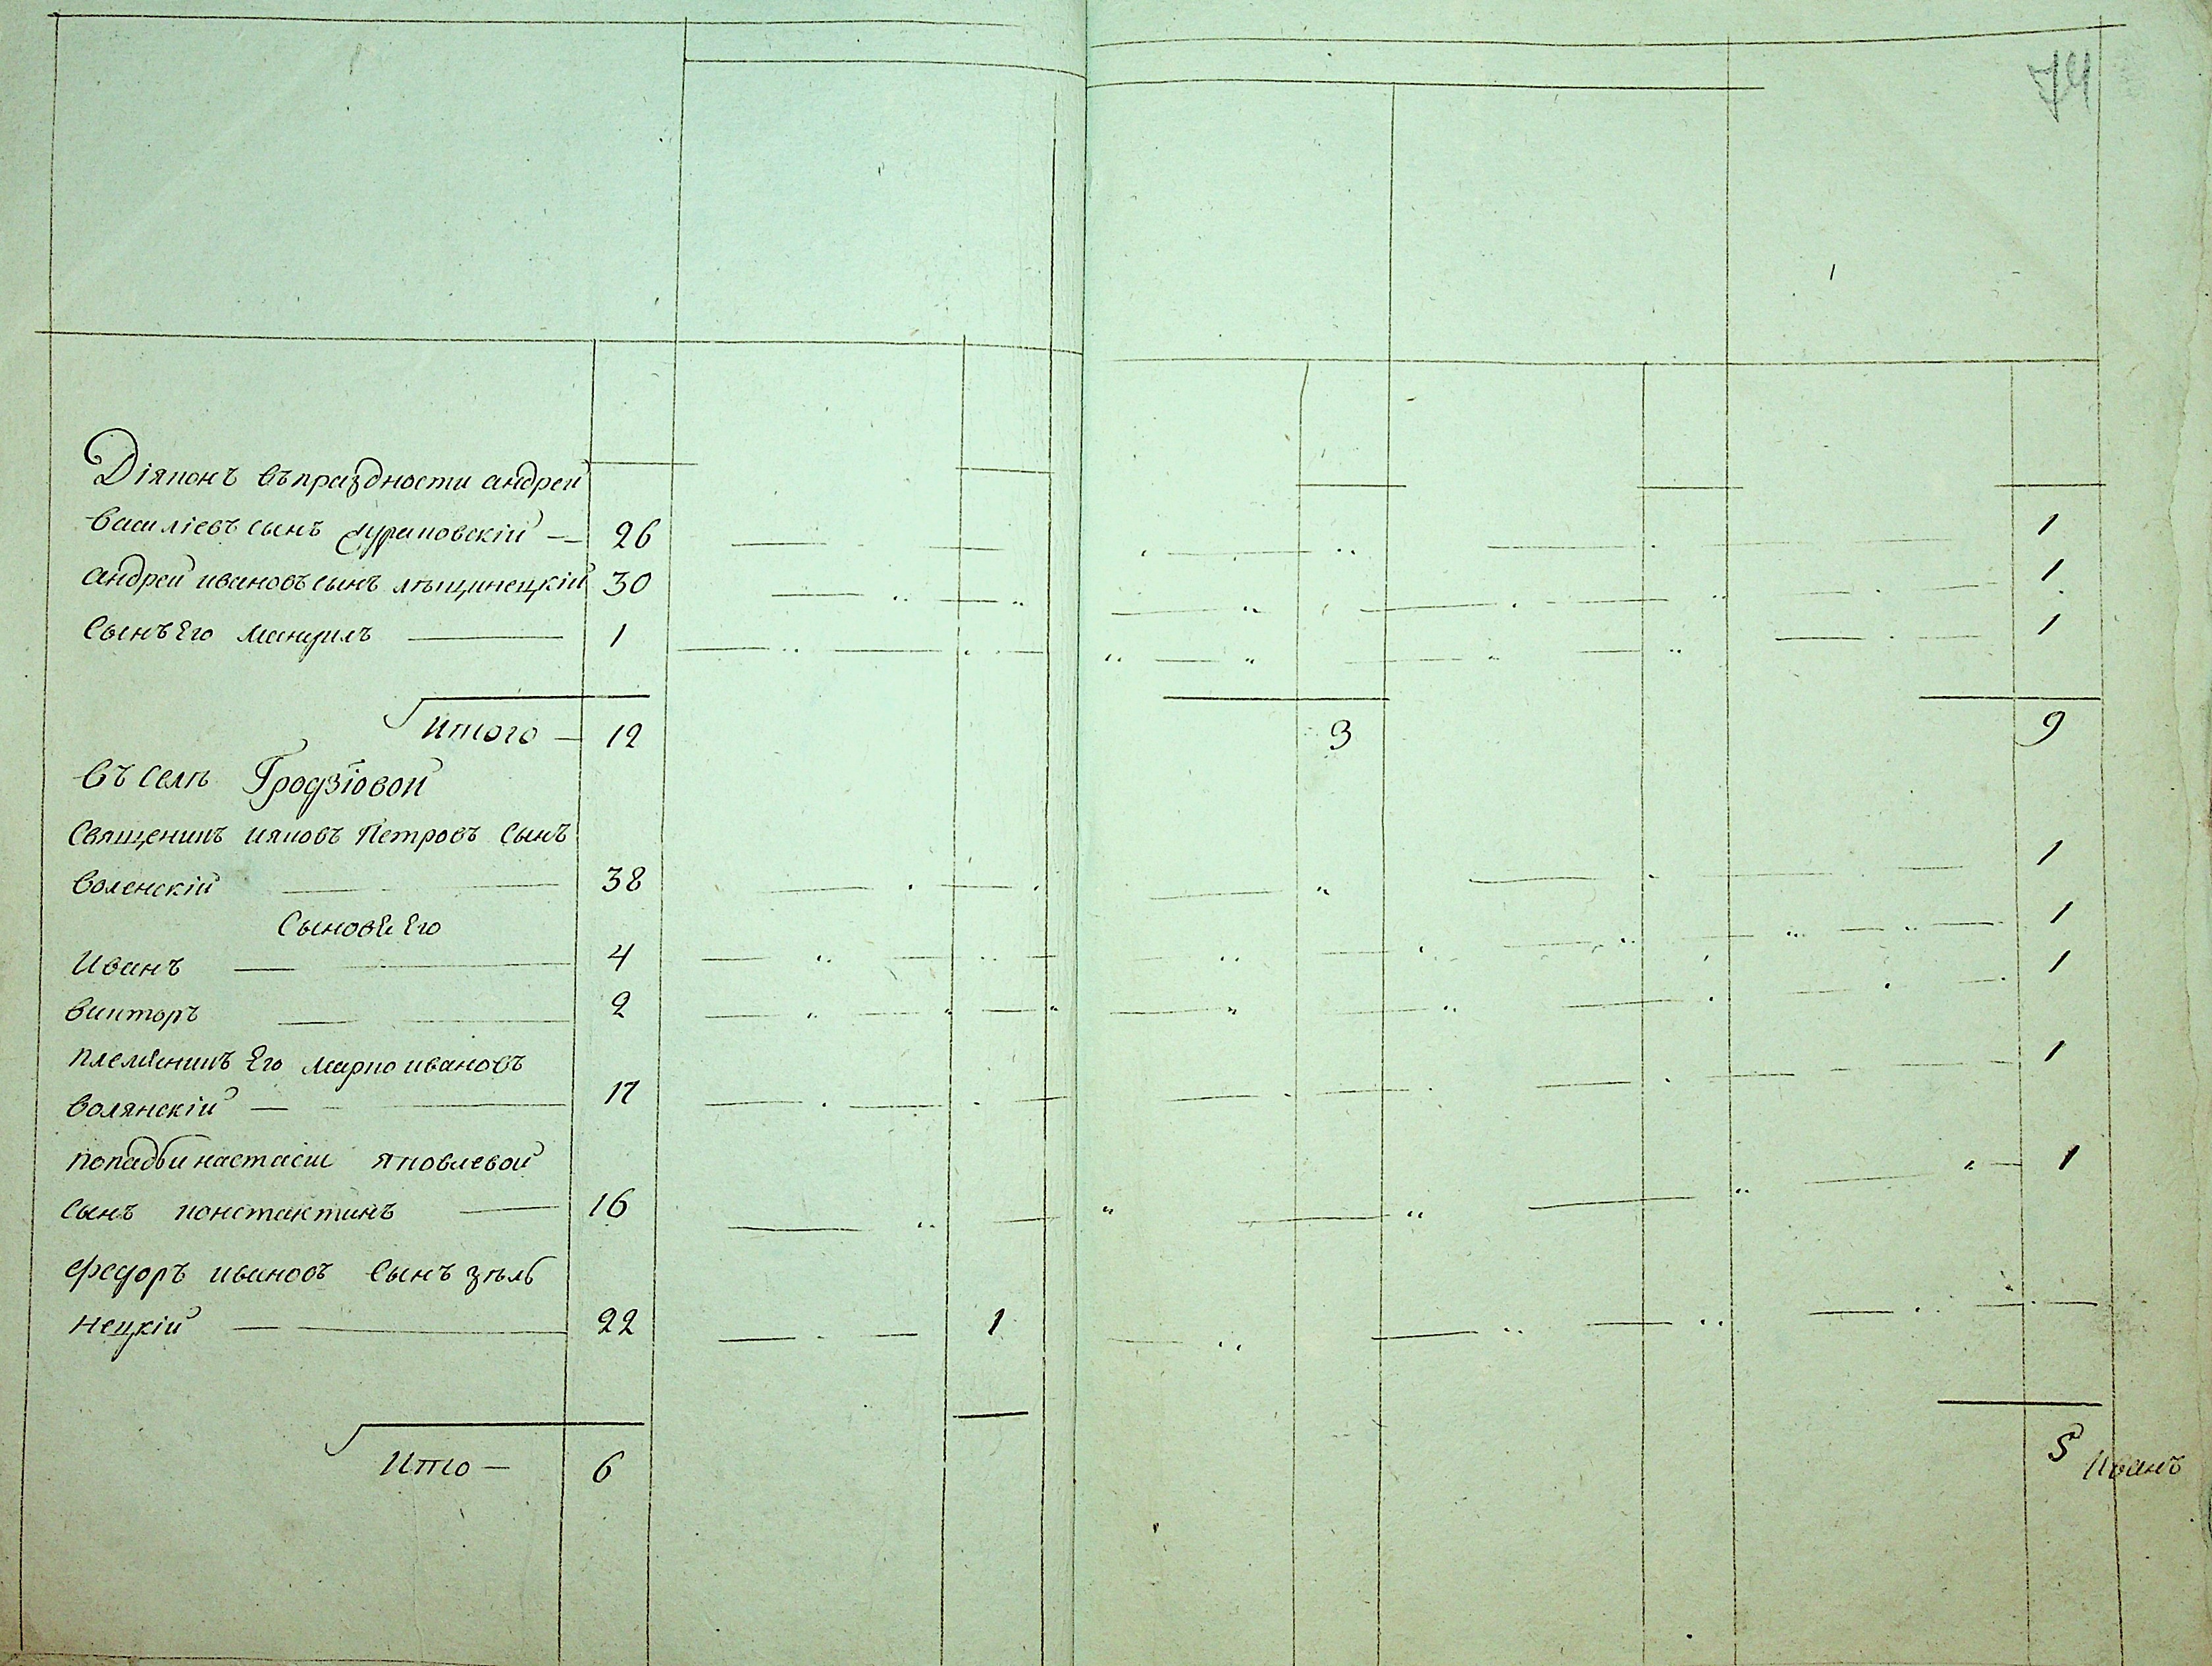 74
Діяконъ въ праздности андрей
василіевъ сынъ — 26 1
андрей ивановъ сынъ лѣщинецкій 30 1
Сынъ Его — 1 1
Итого — 12 3 9
въ селѣ Гродзіовой
Священикъияковъ Петровъ Сынъ
воленскій — 38 1
Сыновѣ Его
Иванъ — 4 1
викторъ — 2 1
племѣникъ Его марко ивановъ
волянскій — 17 1
попадьи настасіи яковлевой
сынъ константинъ — 16 1
федоръ ивановъ сынъ зѣль
нецкій — 22 1
Итго — 6 5
Иванъ